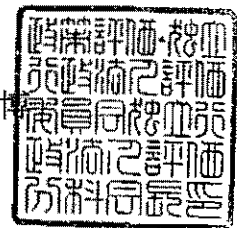 政策評価・独立
行政法人評価
委員会独立行
政法人評価
分科会長印